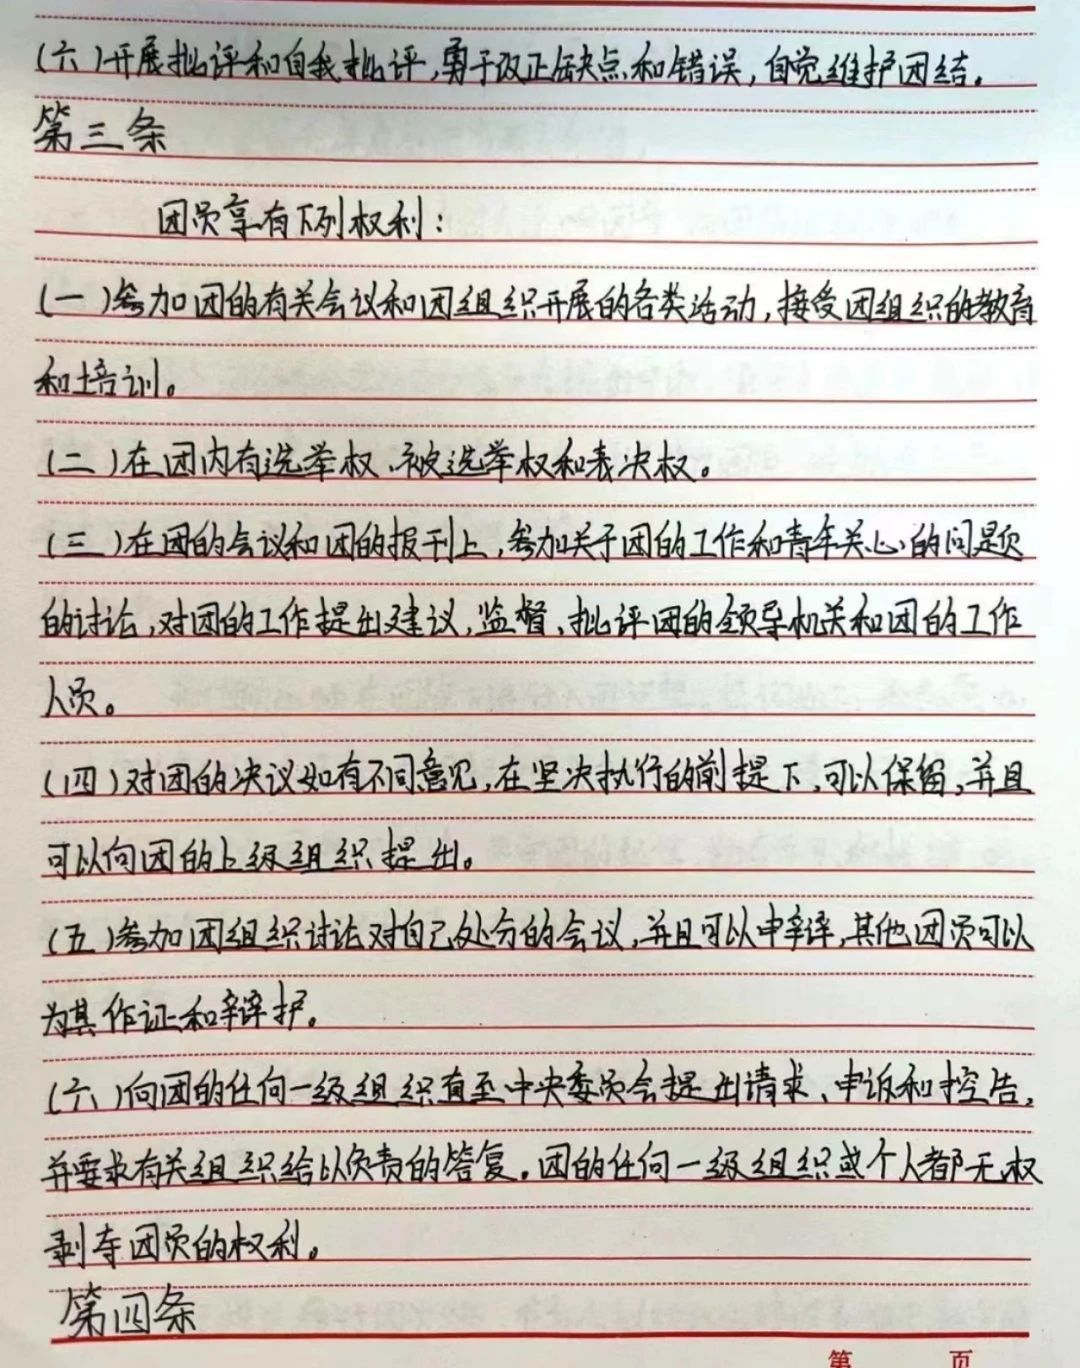 (六)开展批评和自我批评,勇于改正缺点和错误,自觉维护团结。
第三条
团员享有下列权利:
(一)参加团的有关会议和团组织开展的各类活动,接受团组织的教育
和培训。
(二)在团内有选举权、被选举权和表决权。
(三)在团的会议和团的报刊上,参加关于团的工作和青年关心的问题
的讨论,对团的工作提出建议,监督、批评团的领导机关和团的工作
人员。
(四)对团的决议如有不同意见,在坚决执行的前提下,可以保留,并且
可以向团的上级组织提出。
(五)参加团组织讨论对自己处分的会议,并且可以申辩,其他团员可以
为其作证和辩护。
(六)向团的任何一级组织直至中央委员会提出请求、申诉和控告,
并要求有关组织给以负责的答复。团的任何一级组织或个人都无权
剥夺团员的权利。
第四条
第 页